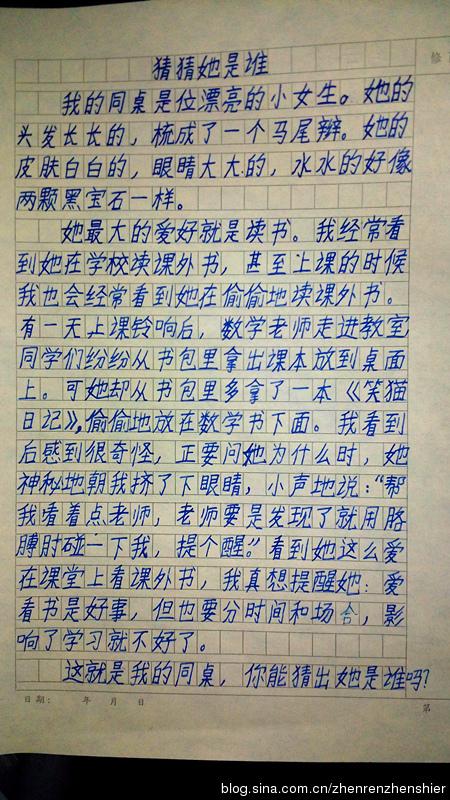 修
猜猜她是谁
我的同桌是位漂亮的小女生。她的
头发长长的，梳成了一个马尾辫。她的
皮肤白白的，眼睛大大的，水水的好像
两颗黑宝石一样。
她最大的爱好就是读书。我经常看
到她在学校读课外书，甚至上课的时候
我也会经常看到她在偷偷地读课外书。
有一天上课铃响后，数学老师走进教室
同学们纷纷从书包里拿出课本放到桌面
上。可她却从书包里多拿了一本《笑猫
日记》，偷偷地放在数学书下面。我看到
后感到很奇怪，正要问她为什么时，她
神秘地朝我挤了下眼睛，小声地说：“帮
我看着点老师，老师要是发现了就用胳
膊肘碰一下我，提个醒。”看到她这么爱
在课堂上看课外书，我真想提醒她：爱
看书是好事，但也要分时间和场合，影
响了学习就不好了。
这就是我的同桌，你能猜出她是谁吗？
日期： 年 月 日
第
blog.sina.com.cn/zhenrenzhenshier